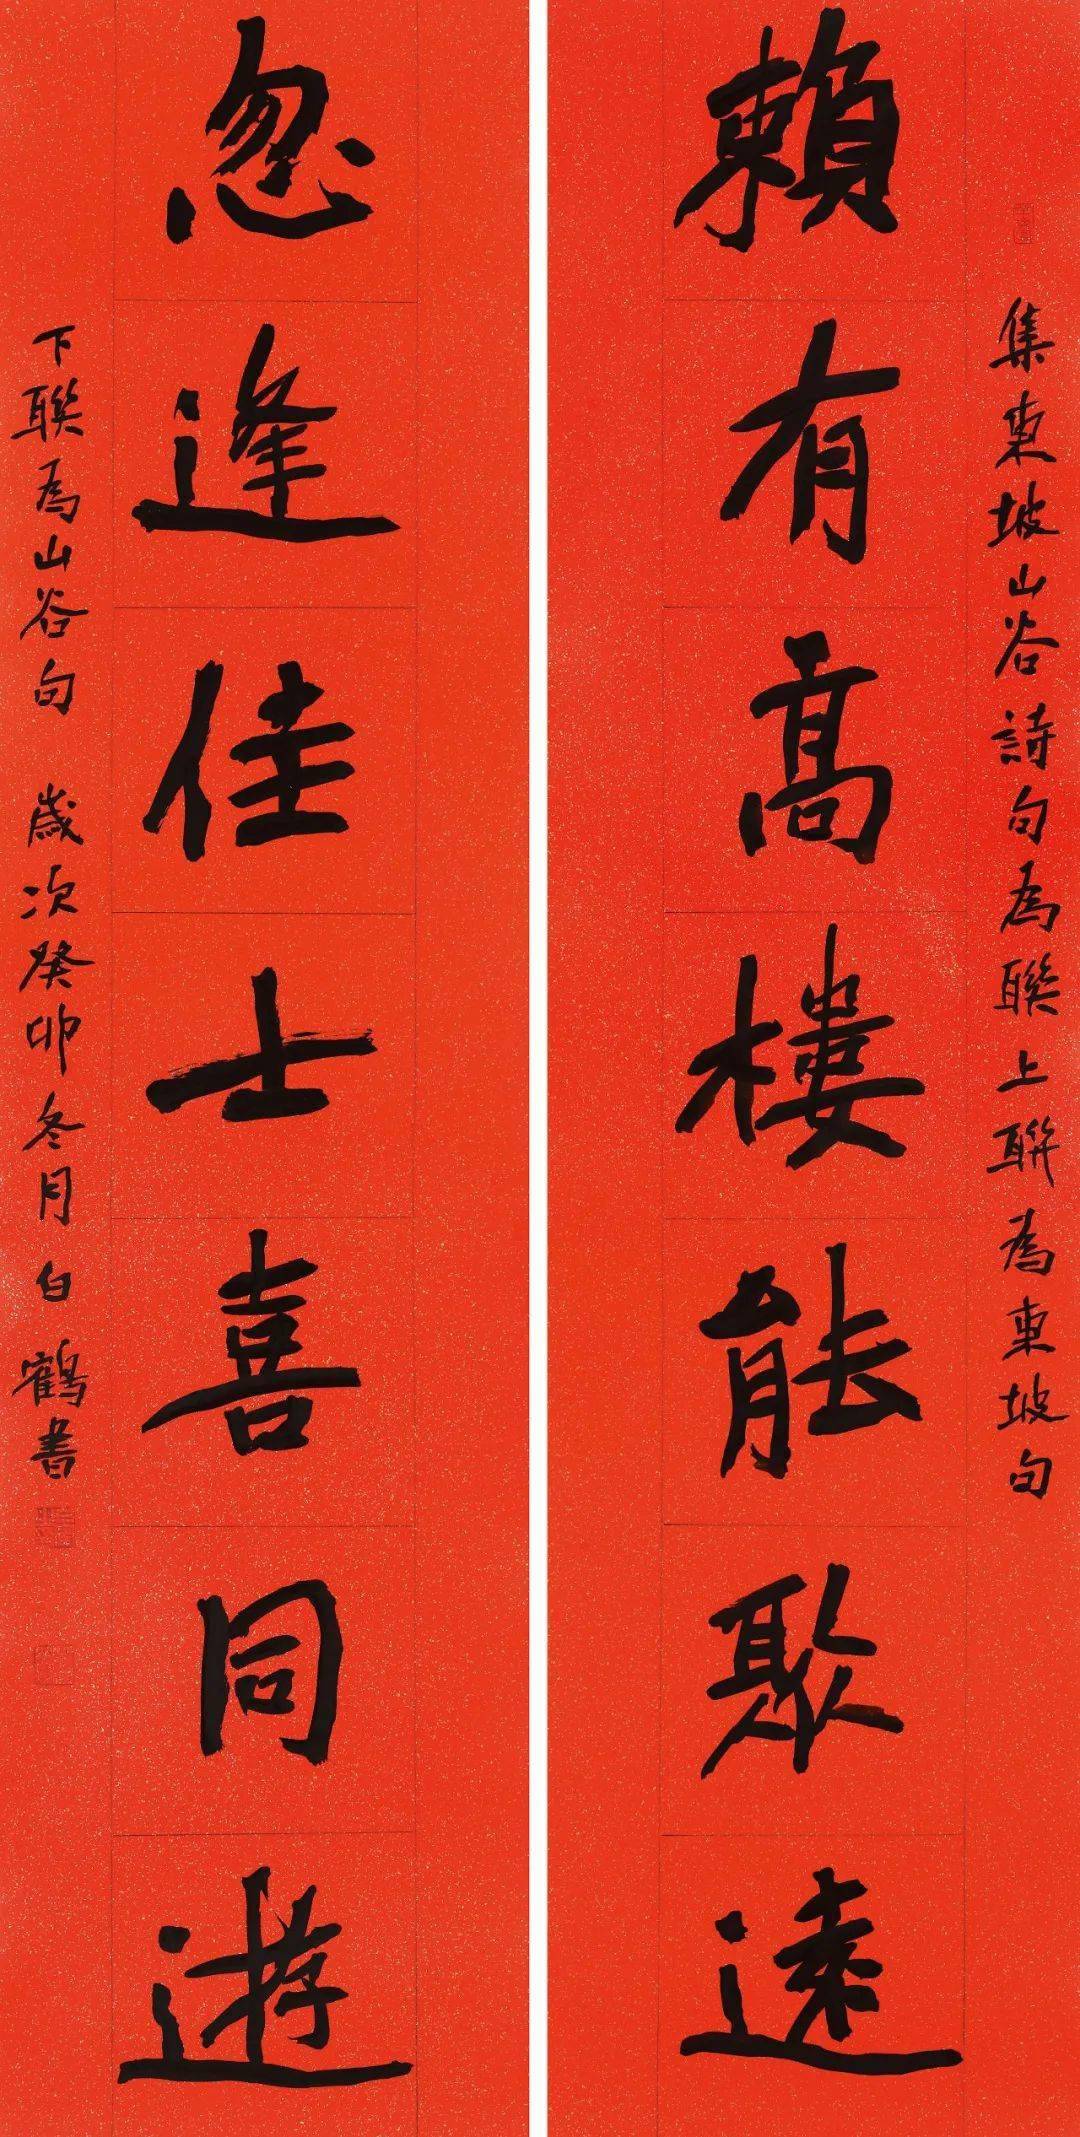 集東坡山谷詩句為聯上聯為東坡句
賴有高樓能聚遠
忽逢佳士喜同遊
下聯為山谷句 歲次癸卯冬月白鶴書